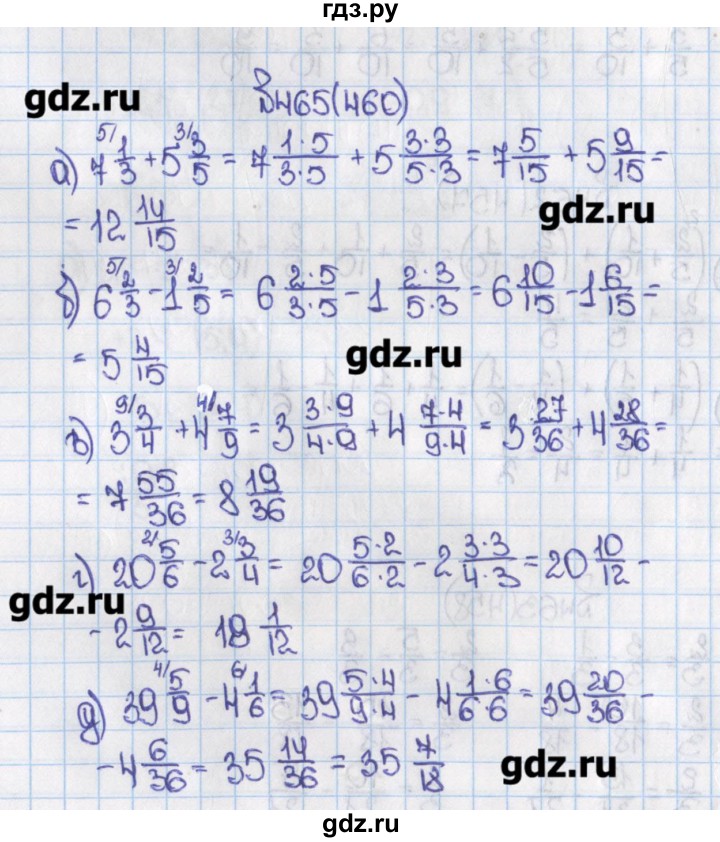 гдз.ру
gdz.ru
№465(460)
а) 7 5/ 1/3 + 5 3/ 3/5 = 7 1·5/3·5 + 5 3·3/5·3 = 7 5/15 + 5 9/15 =
= 12 14/15
gdz.ru
б) 6 5/ 2/3 - 1 3/ 2/5 = 6 2·5/3·5 - 1 2·3/5·3 = 6 10/15 - 1 6/15 =
= 5 4/15
gdz.ru
в) 3 9/ 3/4 + 4 4/ 7/9 = 3 3·9/4·9 + 4 7·4/9·4 = 3 27/36 + 4 28/36 =
= 7 55/36 = 8 19/36
г) 20 2/ 5/6 - 2 3/ 3/4 = 20 5·2/6·2 - 2 3·3/4·3 = 20 10/12 -
gdz.ru
- 2 9/12 = 18 1/12
д) 39 4/ 5/9 - 4 6/ 1/6 = 39 5·4/9·4 - 4 1·6/6·6 = 39 20/36 -
- 4 6/36 = 35 14/36 = 35 7/18
gdz.ru
gdz.ru